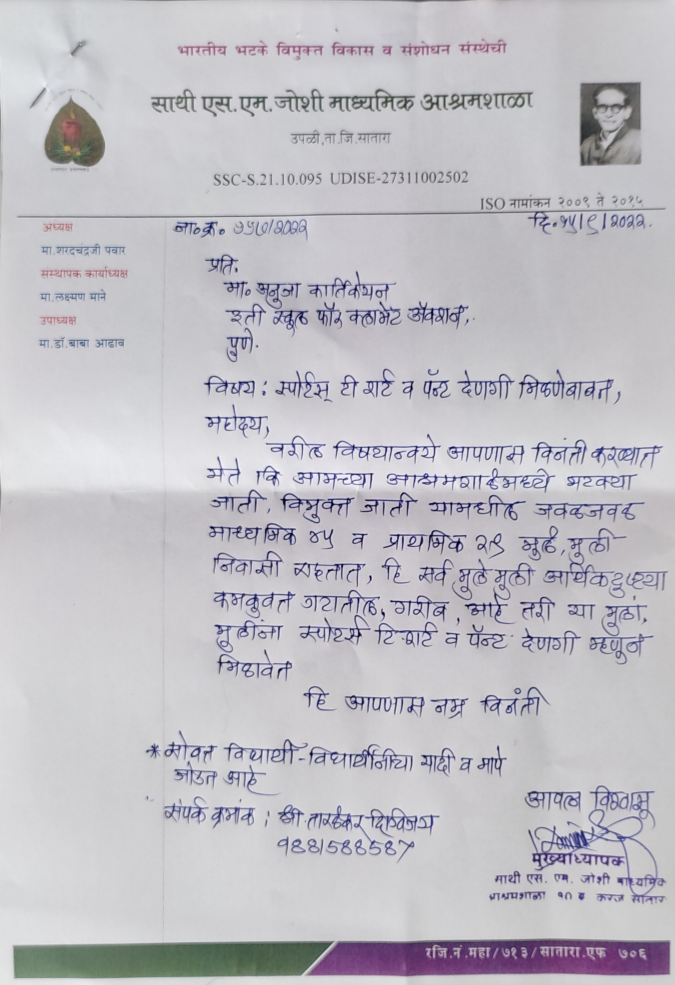 भारतीय भटके विमुक्त विकास व संशोधन संस्थेची
साथी एस.एम.जोशी माध्यमिक आश्रमशाळा
उपळी,ता.जि.सातारा
SSC-S.21.10.095 UDISE-27311002502
ISO नामांकन २००९ ते २०१५
अध्यक्ष
मा.शरदचंद्रजी पवार
संस्थापक कार्याध्यक्ष
मा.लक्ष्मण माने
उपाध्यक्ष
मा.डॉ.बाबा आढाव
जा०क्र०
दि.१५/९/२०२२.
प्रति,
मा० अनुजा कार्तिकेयन
इती स्कूल फॉर क्लायमेट ॲक्शन,
पुणे.
विषय : स्पोर्टस् टी शर्ट व पॅन्ट देणगी मिळणेबाबत,
महोदय,
वरील विषयान्वये आपणास विनंती करण्यात
येते कि आमच्या आश्रमशाळेमध्ये भटक्या
जाती, विमुक्त जाती यामधील जवळजवळ
माध्यमिक ४५ व प्राथमिक २९ मुले, मुली
निवासी राहतात, हि सर्व मुले मुली आर्थिकदृष्ट्या
कमकुवत गटातील, गरीब, आहे तरी या मुलां,
मुलींना स्पोर्टस टि-शर्ट व पॅन्ट देणगी म्हणून
मिळावेत
हि आपणास नम्र विनंती
* सोबत विद्यार्थी-विद्यार्थीनींचा यादी व मापे
जोडत आहे
संपर्क क्रमांक : श्री. तारळेकर दिग्विजय
9881588587
आपला विश्वासू
मुख्याध्यापक
साथी एस. एम. जोशी माध्यमिक
आश्रमशाळा
रजि.नं.महा/७१३/सातारा.एफ ७०६